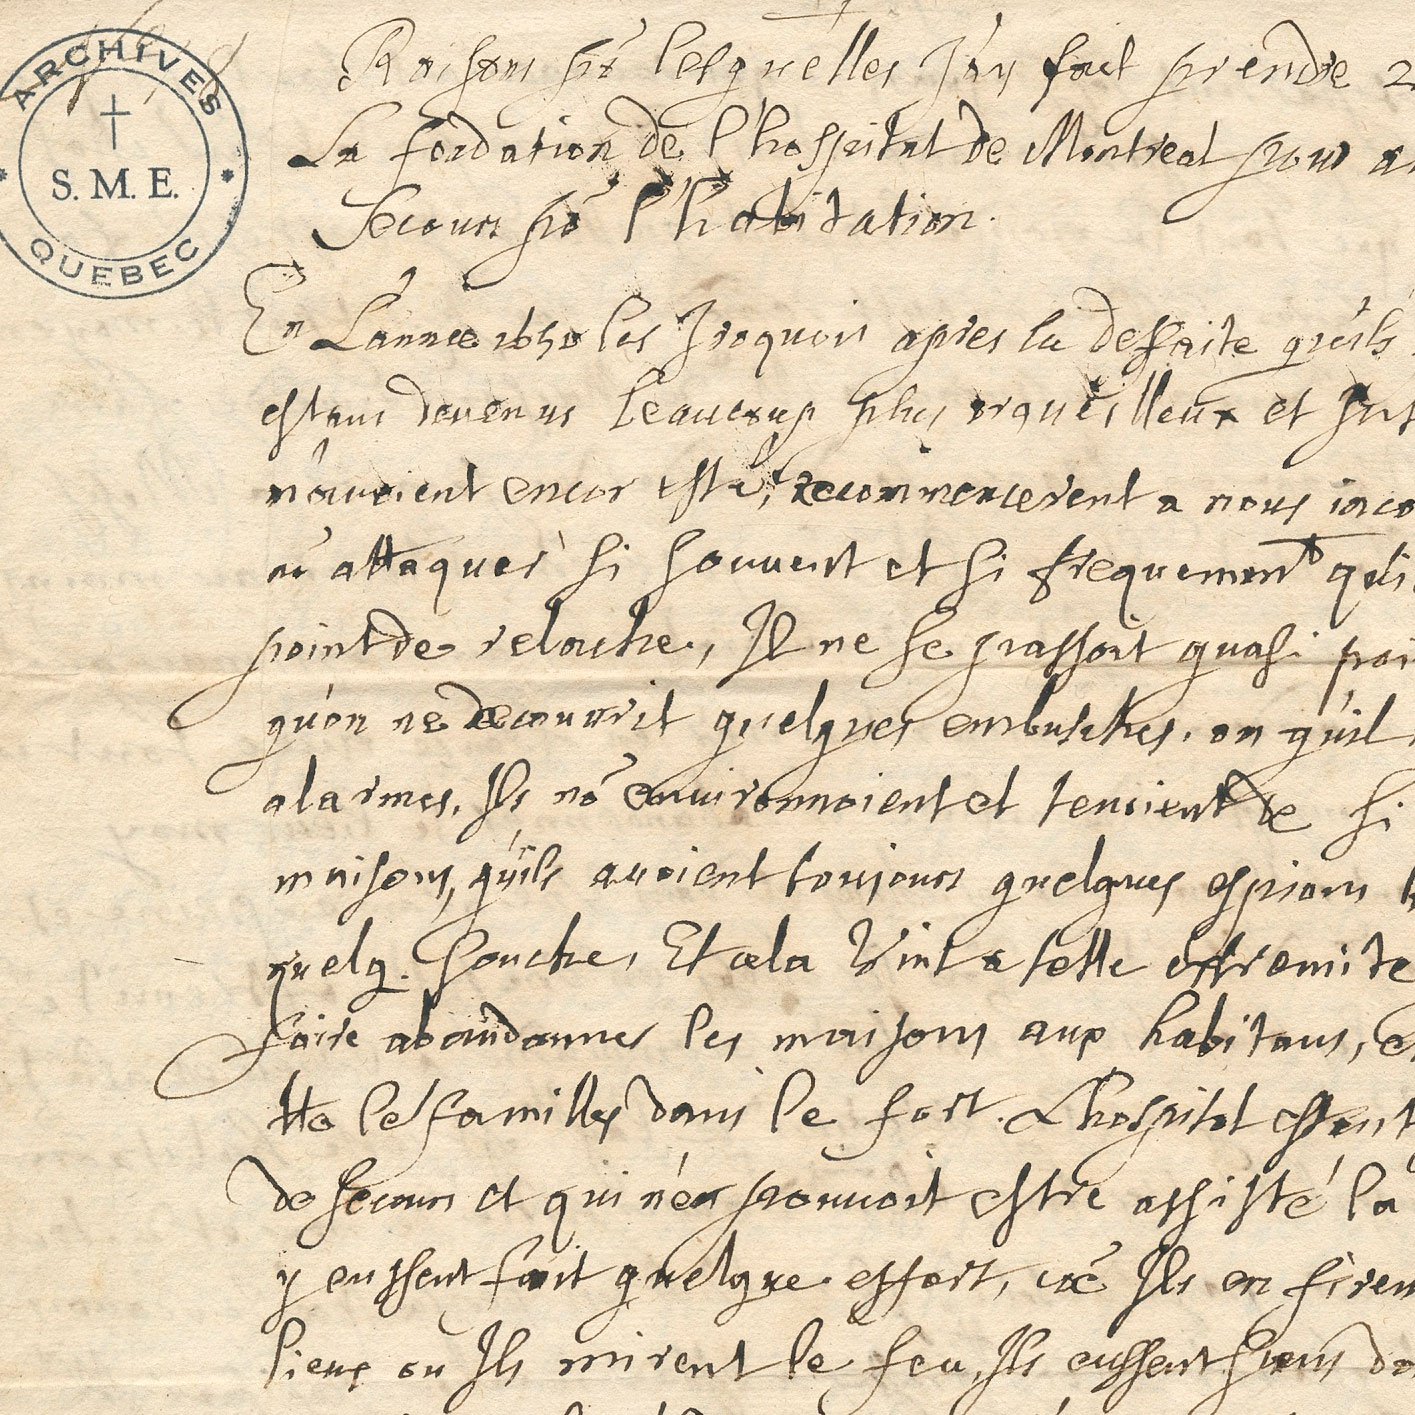 ARCHIVES
S. M. E.
QUEBEC
Raisons pr lesquelles J'ay fait prendre 2
La fondation de l'hospital de Montreal pour
Secours pr l'habitation.
En L'annee 1650 les Iroquois apres la desfaite qu'ils
estans devenus beaucoup plus orgueilleux et
n'avoient encor esté, recommencerent a nous
attaquer si souvent et si frequemment
point de relasche, Il ne se passoit quasi
qu'on ne decouvrit quelques embusches, ou qu'il
alarmes. Ils no environnoient et tenoient de si
maisons, qu'ils avoient toujours quelques espions
quelq. souche, Et cela Vint a telle extremite
faire abandonner les maisons aux habitans,
tte les familles dans le fort. L'hospital estant
de secours et qui n'en pouvoit estre assisté la
y eussent fait quelque effort, Ils en firen
lieux ou Ils mirent le feu, Ils eussent sans